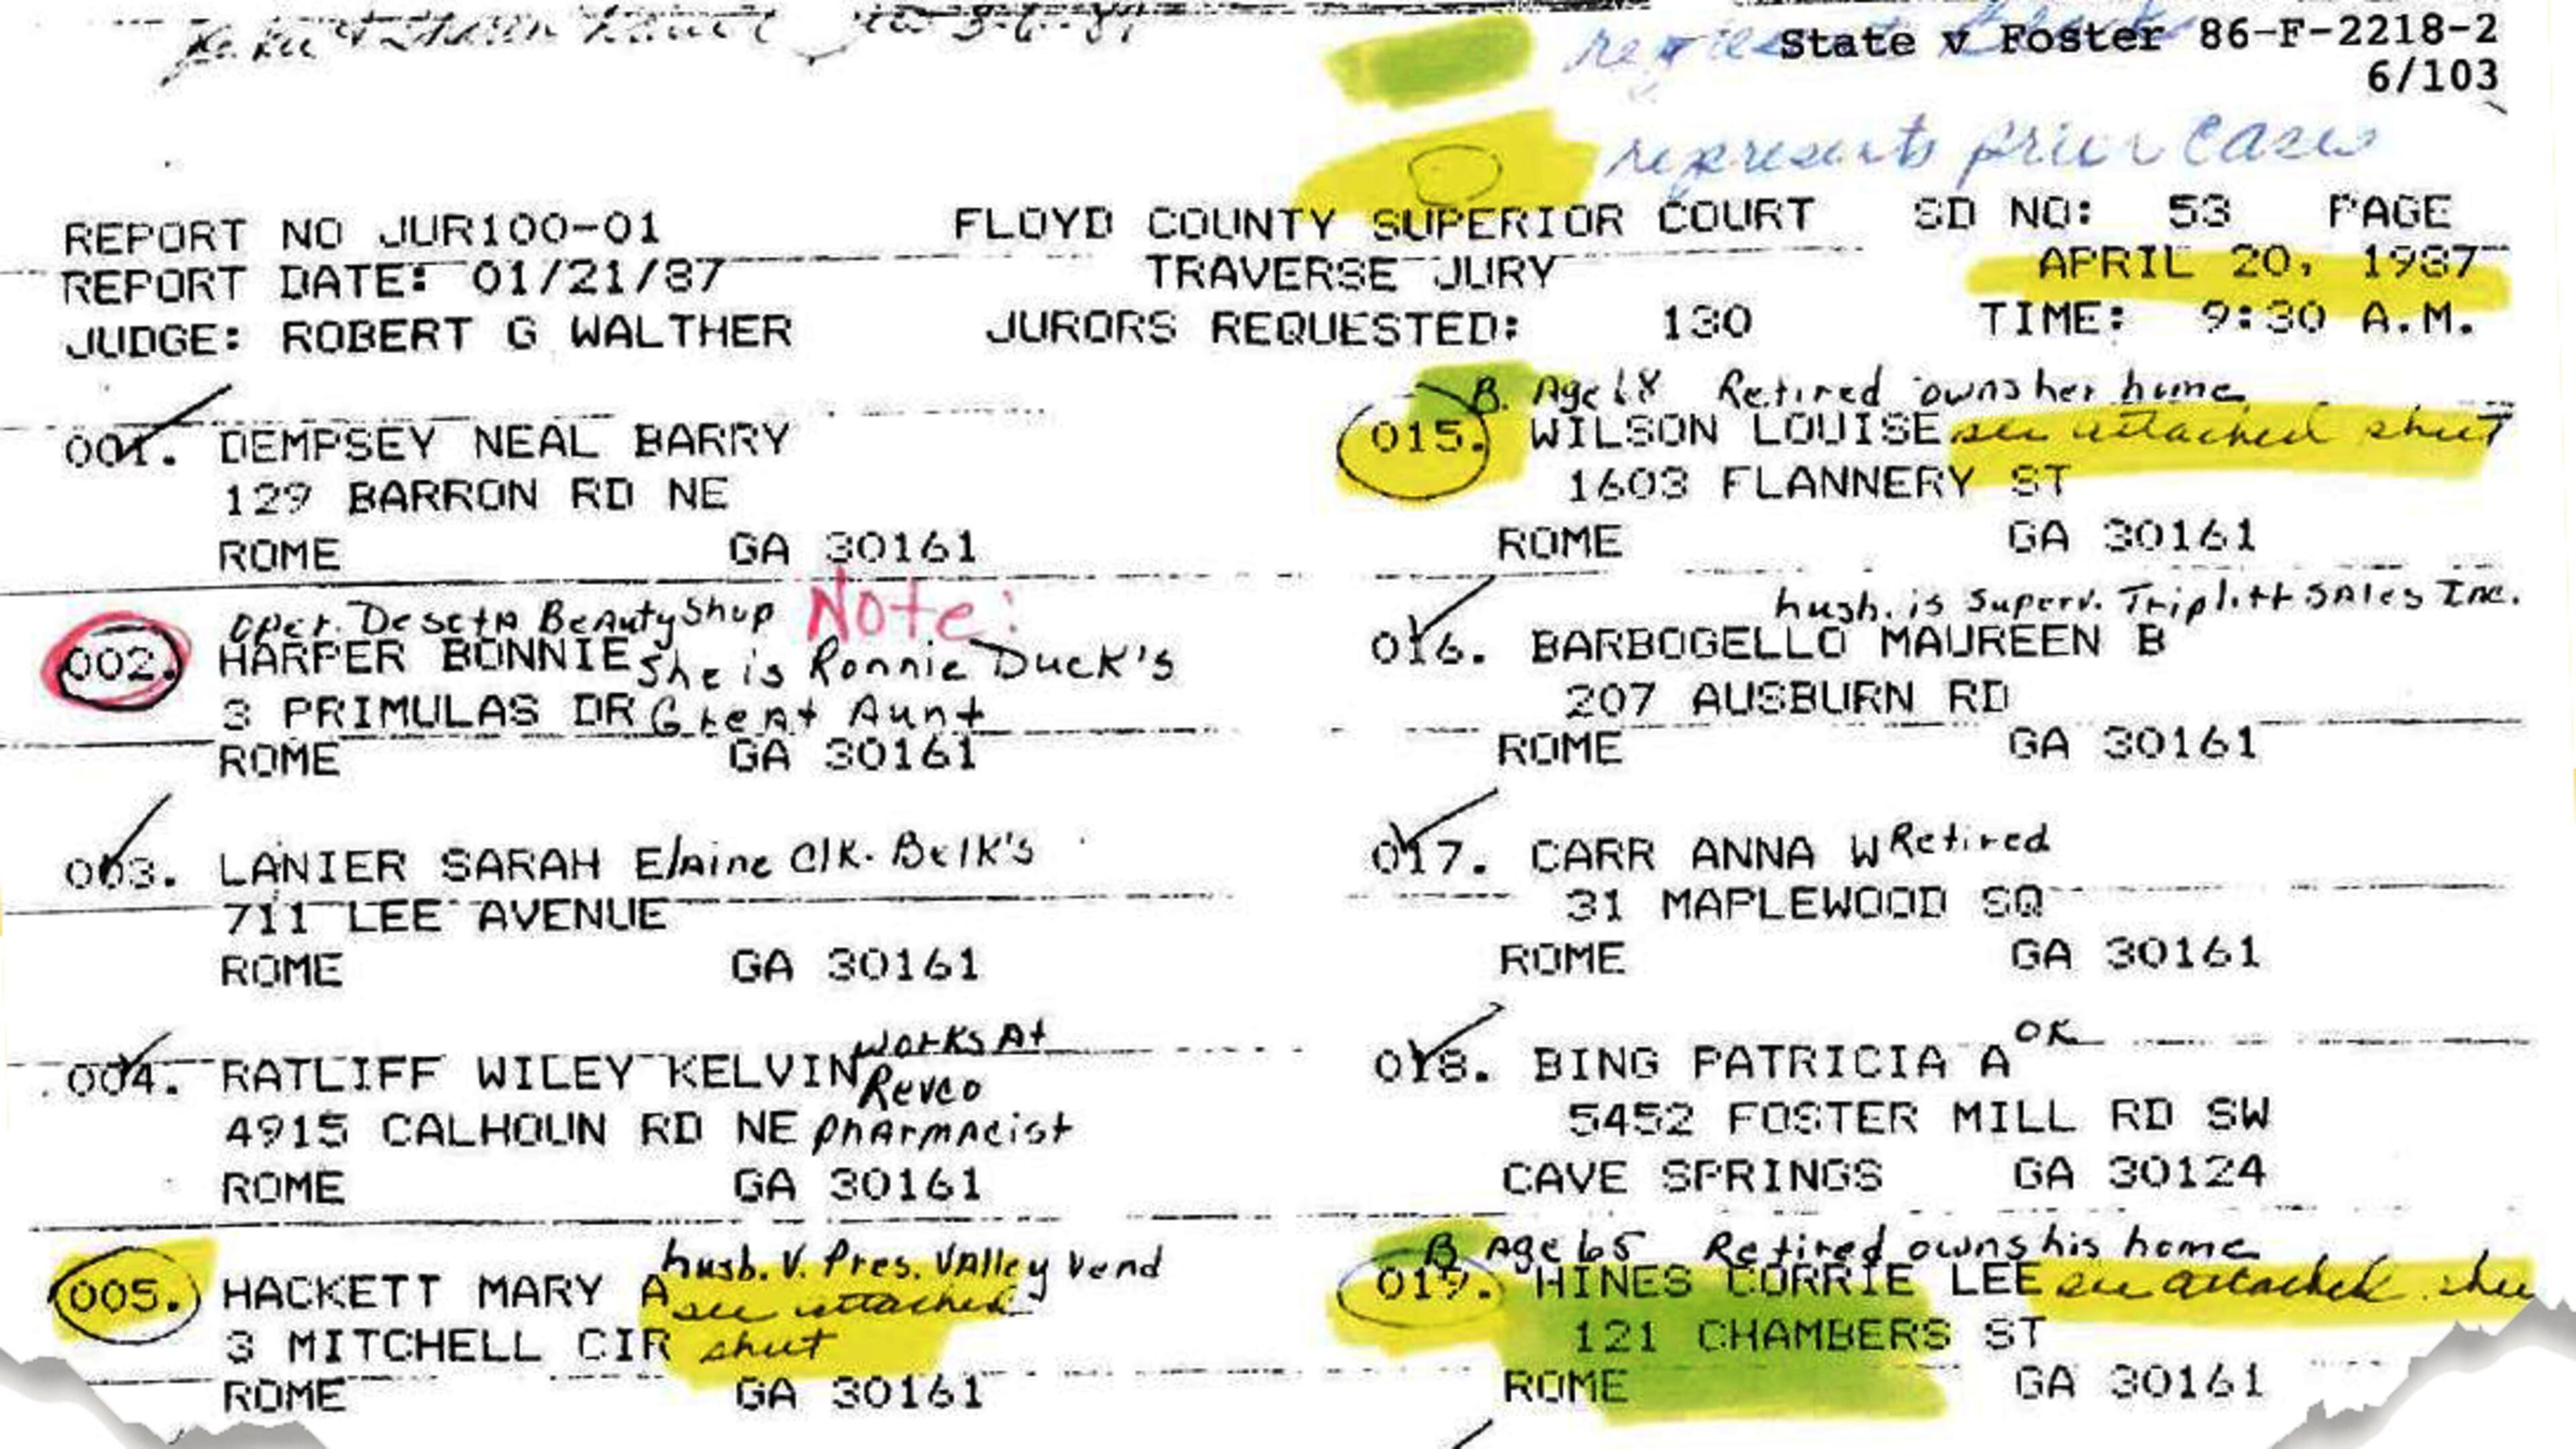 State v Foster 86-F-2218-2
6/103
represents
represents prior cases
REPORT NO JUR100-01 FLOYD COUNTY SUPERIOR COURT SD NO: 53 PAGE
REPORT DATE: 01/21/87 TRAVERSE JURY APRIL 20, 1987
JUDGE: ROBERT G WALTHER JURORS REQUESTED: 130 TIME: 9:30 A.M.
001. DEMPSEY NEAL BARRY
129 BARRON RD NE
ROME GA 30161
oper. Beauty Shop Note:
002. HARPER BONNIE She is Ronnie Duck's
3 PRIMULAS DR Great Aunt
ROME GA 30161
003. LANIER SARAH Elaine Clk. Belk's
711 LEE AVENUE
ROME GA 30161
works At
004. RATLIFF WILEY KELVIN Revco
4915 CALHOUN RD NE pharmacist
ROME GA 30161
husb. V. Pres. Valley Vend
005. HACKETT MARY A see attached
3 MITCHELL CIR sheet
ROME GA 30161
B. Age 68 Retired owns her home
015. WILSON LOUISE see attached sheet
1603 FLANNERY ST
ROME GA 30161
husb. is Superv. Triplitt Sales Inc.
016. BARBOGELLO MAUREEN B
207 AUSBURN RD
ROME GA 30161
017. CARR ANNA W Retired
31 MAPLEWOOD SQ
ROME GA 30161
OK
018. BING PATRICIA A
5452 FOSTER MILL RD SW
CAVE SPRINGS GA 30124
B Age 65 Retired owns his home
019. HINES CORRIE LEE see attached shee
121 CHAMBERS ST
ROME GA 30161